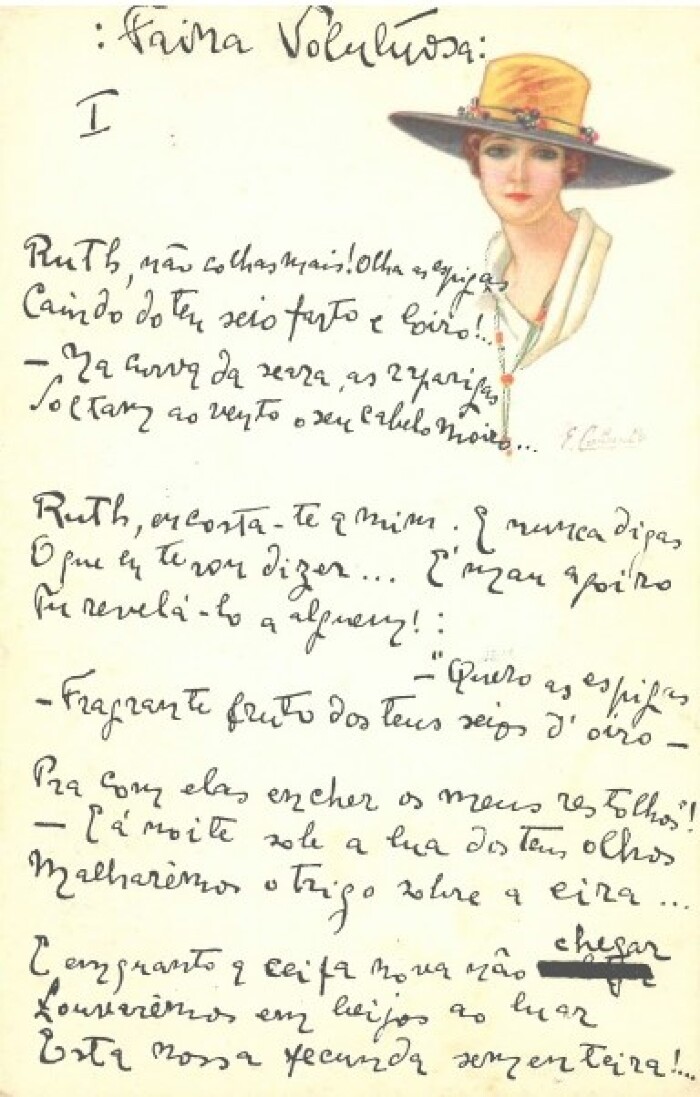 : Faina Voluptuosa:
I
Ruth, não colhas mais! Olha as espigas
Caindo do teu seio farto e loiro!..
— Na curva da seara, as raparigas
Soltam ao vento o seu cabelo moiro...
Ruth, encosta-te a mim. E nunca digas
O que eu te vou dizer... E' mau agoiro
Tu revelá-lo a alguem! :
—"Quero as espigas
— Fragrante fruto dos teus seios d'oiro —
Pra com elas encher os meus restolhos"!
— E á noite sob a lua dos teus olhos
Malharêmos o trigo sobre a eira ...
E emquanto a ceifa nova não chegar
Louvarêmos em beijos ao luar
Esta nossa fecunda sementeira!...